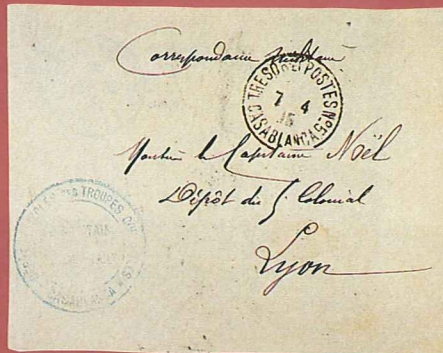 Correspondance militaire
TRESOR ET POSTES Nº
7 4
15
CASABLANCA
Monsieur le Capitaine Noël
Dépôt du 5e Colonial
Lyon
DES TROUPES
CASABLANCA